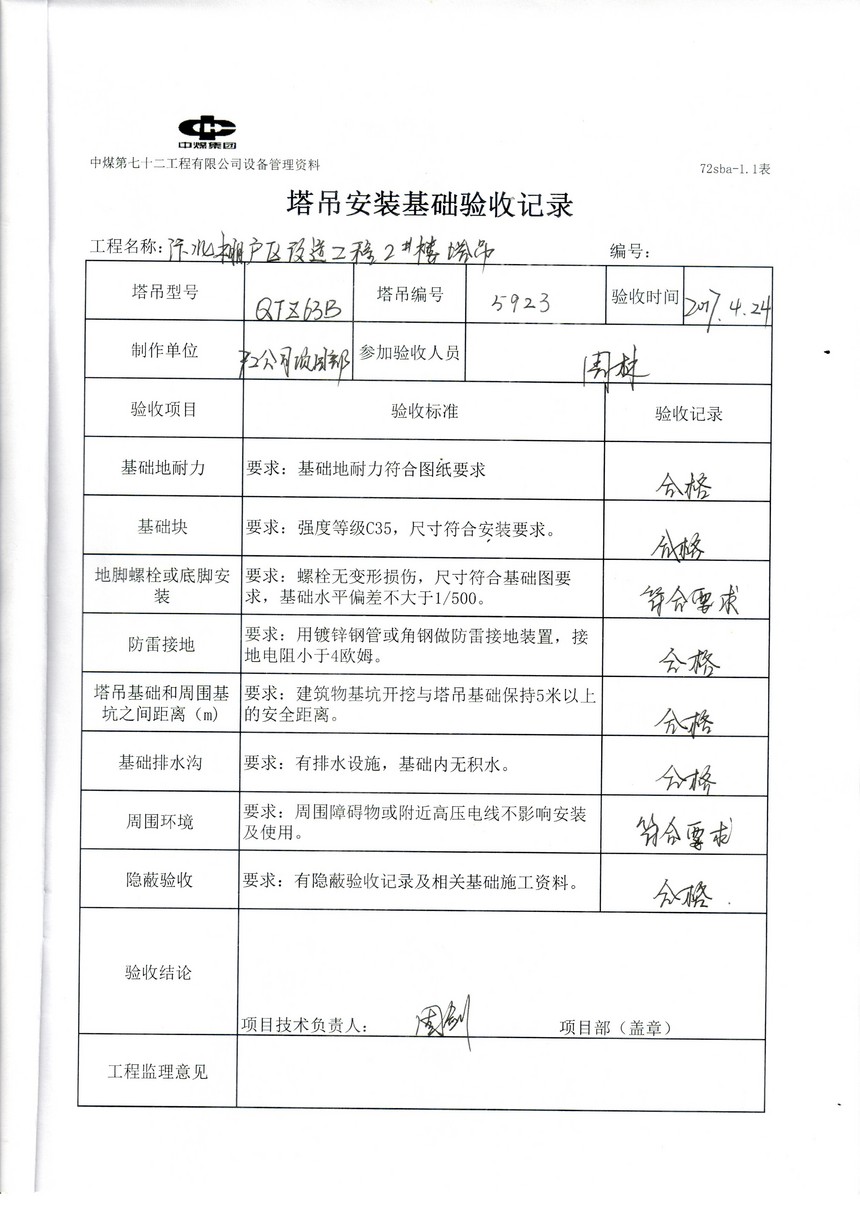 中煤集团
中煤第七十二工程有限公司设备管理资料
72sba-1.1表
塔吊安装基础验收记录
工程名称: 棚户区改造工程2#楼塔吊 编号:
塔吊型号 QTZ63B 塔吊编号 5923 验收时间 2017.4.24
制作单位 公司项目部 参加验收人员 周林
验收项目 验收标准 验收记录
基础地耐力 要求：基础地耐力符合图纸要求 合格
基础块 要求：强度等级C35，尺寸符合安装要求。 合格
地脚螺栓或底脚安 要求：螺栓无变形损伤，尺寸符合基础图要
装 求，基础水平偏差不大于1/500。 符合要求
防雷接地 要求：用镀锌钢管或角钢做防雷接地装置，接
地电阻小于4欧姆。 合格
塔吊基础和周围基 要求：建筑物基坑开挖与塔吊基础保持5米以上
坑之间距离（m） 的安全距离。 合格
基础排水沟 要求：有排水设施，基础内无积水。 合格
周围环境 要求：周围障碍物或附近高压电线不影响安装
及使用。 符合要求
隐蔽验收 要求：有隐蔽验收记录及相关基础施工资料。 合格
验收结论
项目技术负责人： 项目部（盖章）
工程监理意见